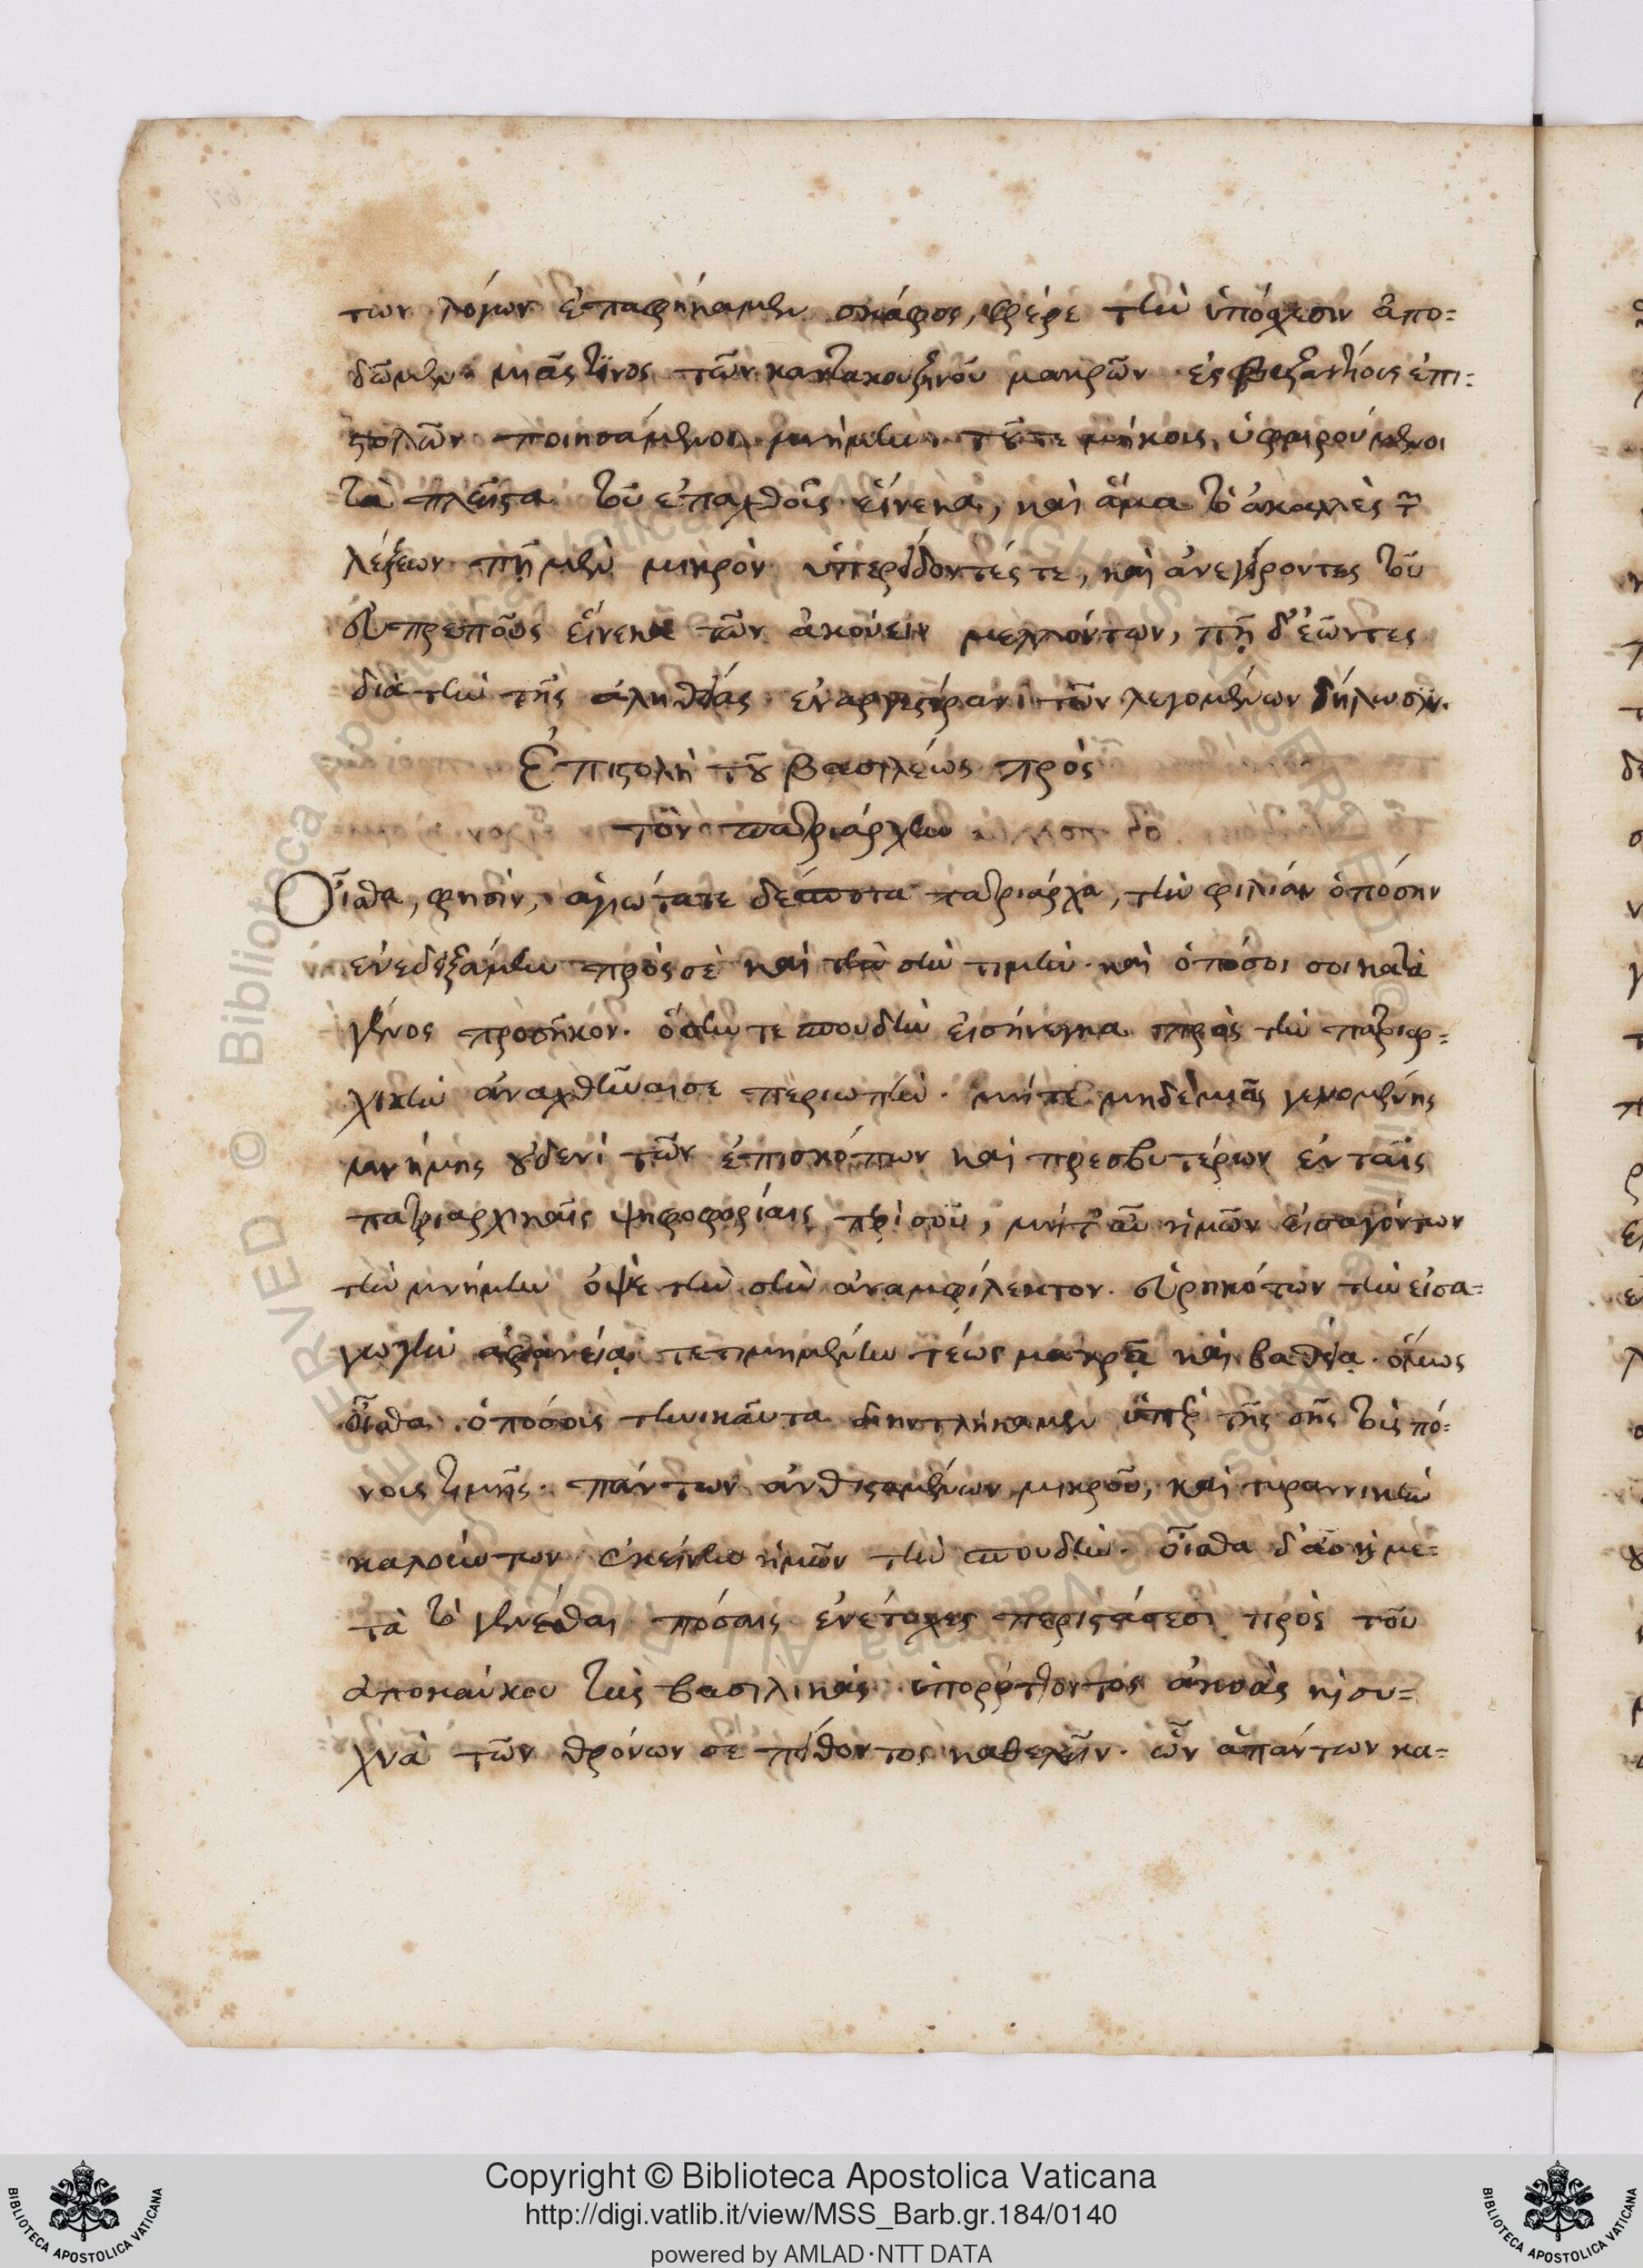 των λόγων ἐπαφήκαμεν σκάφος, φέρε τὴν ὑπόσχεσιν ἀπο=
δῶμεν μιᾶς τινος τῶν καντακουζηνοῦ μακρῶν ἐς βυζαντίους ἐπι=
στολῶν ποιησάμενοι μνήμην. τοῦ τε μήκους ὑφαιρούμενοι
τὰ πλεῖστα τοῦ ἐπαχθοῦς εἵνεκα, καὶ ἅμα τὸ ἀκαλλὲς τῶν
λέξεων πῇ μὲν μικρὸν ὑπεριδόντές τε, καὶ ἀνεγείροντες τοῦ
εὐπρεποῦς εἵνεκα τῶν ἀκούειν μελλόντων, πῇ δ' ἐῶντες
διὰ τὴν τῆς ἀληθείας ἐναργεστέραν τῶν λεγομένων δήλωσιν.
Ἐπιστολὴ τοῦ βασιλέως πρὸς
τὸν πατριάρχην
Οἶσθα, φησὶν, ἁγιώτατε δέσποτα πατριάρχα, τὴν φιλίαν ὁπόσην
ἐνεδειξάμην πρὸς σὲ καὶ τὴν σὴν τιμὴν. καὶ ὁπόσοι σοι κατὰ
γένος προσῆκον. ὅσην τε σπουδὴν εἰσήνεγκα πρὸς τὴν πατριαρ=
χικὴν ἀναχθῆναι σε περιωπὴν. μήτε μηδεμιᾶς γενομένης
μνήμης οὐδενὶ τῶν ἐπισκόπων καὶ πρεσβυτέρων ἐν ταῖς
πατριαρχικαῖς ψηφοφορίαις περὶ σοῦ, μήτ' αὖ ἡμῶν εἰσαγόντων
τὴν μνήμην ὀψὲ τὴν σὴν ἀναμφίλεκτον. εὑρηκότων τὴν εἰσα=
γωγὴν ἀφανείᾳ τετιμημένην τέως μακρᾷ καὶ βαθείᾳ. ὅμως
οἶσθα ὁπόσοις τηνικαῦτα διηντλήκαμεν ὑπὲρ τῆς σῆς τοῖς πό=
νοις τιμῆς. πάντων ἀνθισταμένων μικροῦ, καὶ τυραννικὴν
καλούντων ἐκείνην ἡμῶν τὴν σπουδὴν. οἶσθα δ' αὖ καὶ με=
τὰ τὸ γενέσθαι πόσαις ἐνέτυχες περιστάσεσι πρὸς τοῦ
ἀποκαύκου τὰς βασιλικὰς ὑπορύττοντος ἀκοὰς καὶ συ=
χνὰ τῶν θρόνων σε πείθοντος καθελεῖν. ὧν ἁπάντων κα=
Copyright © Biblioteca Apostolica Vaticana
http://digi.vatlib.it/view/MSS_Barb.gr.184/0140
powered by AMLAD·NTT DATA